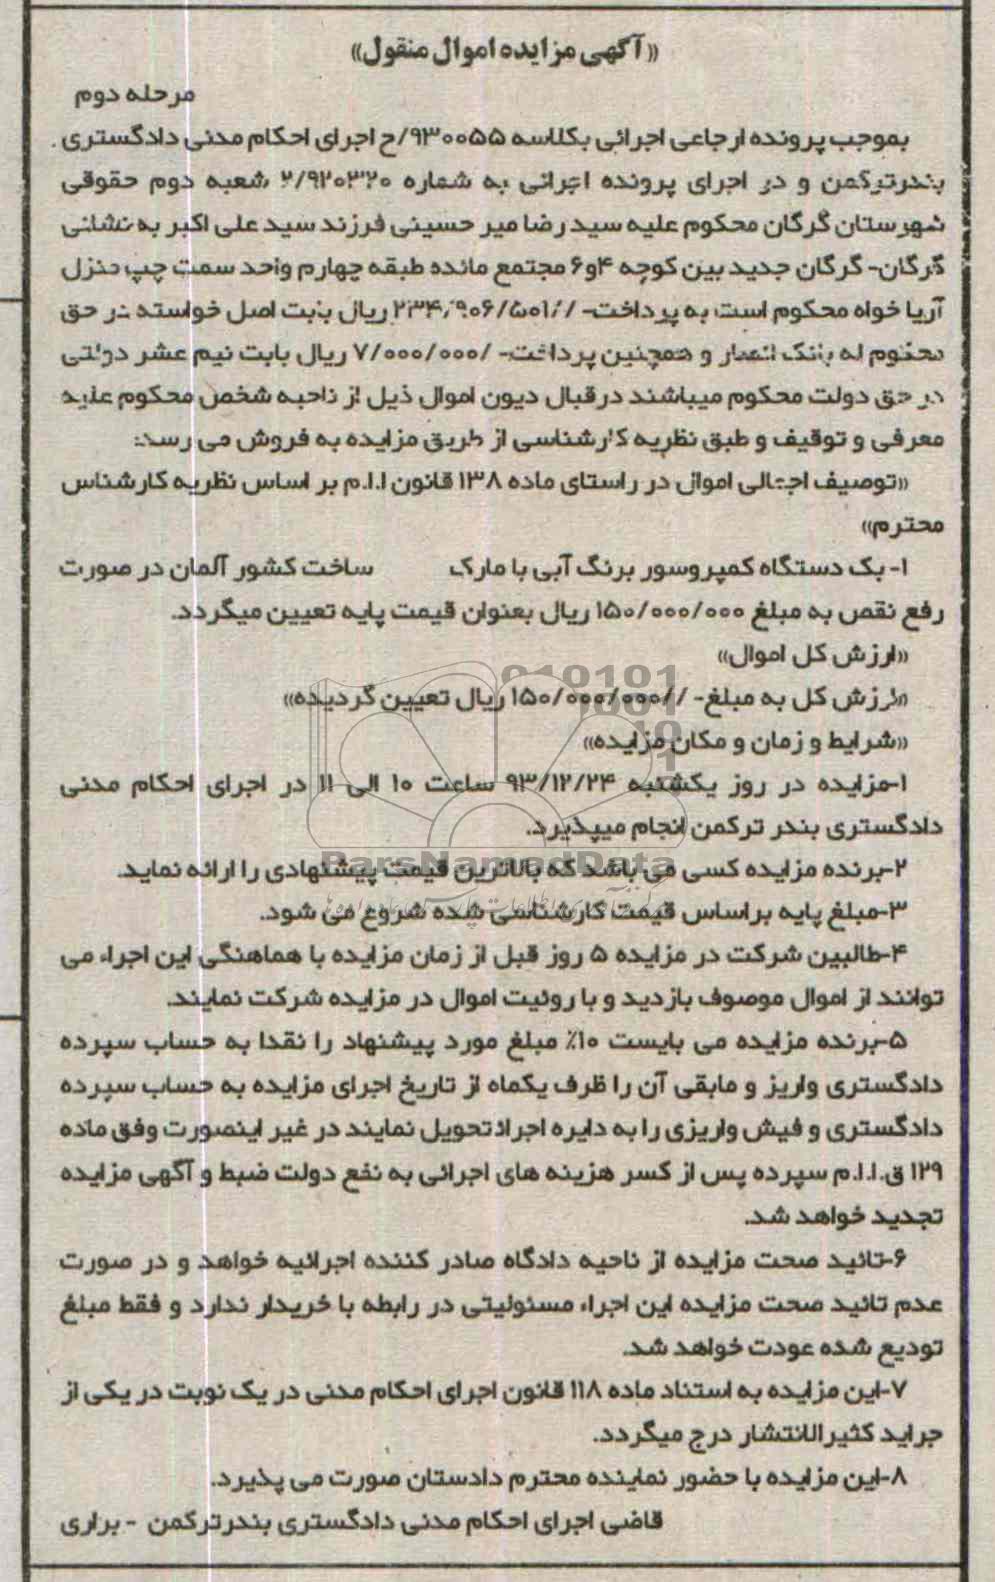 «آگهی مزایده اموال منقول»
مرحله دوم
بموجب پرونده ارجاعی اجرائی بکلاسه ۹۳۰۰۵۵/ح اجرای احکام مدنی دادگستری
بندرترکمن و در اجرای پرونده اجرائی به شماره ۲/۹۲۰۳۲۰ شعبه دوم حقوقی
شهرستان گرگان محکوم علیه سید رضا میر حسینی فرزند سید علی اکبر به نشانی
گرگان- گرگان جدید بین کوچه ۴و۶ مجتمع مائده طبقه چهارم واحد سمت چپ منزل
آریا خواه محکوم است به پرداخت- //۲۳۴/۹۰۶/۵۰۱ ریال بابت اصل خواسته در حق
محکوم له بانک انصار و همچنین پرداخت- /۷/۰۰۰/۰۰۰ ریال بابت نیم عشر دولتی
در حق دولت محکوم میباشند درقبال دیون اموال ذیل از ناحیه شخص محکوم علیه
معرفی و توقیف و طبق نظریه کارشناسی از طریق مزایده به فروش می رسد:
«توصیف اجمالی اموال در راستای ماده ۱۳۸ قانون ا.ا.م بر اساس نظریه کارشناس
محترم»
۱- یک دستگاه کمپروسور برنگ آبی با مارک ساخت کشور آلمان در صورت
رفع نقص به مبلغ ۱۵۰/۰۰۰/۰۰۰ ریال بعنوان قیمت پایه تعیین میگردد.
«ارزش کل اموال»
«ارزش کل به مبلغ- //۱۵۰/۰۰۰/۰۰۰ ریال تعیین گردیده»
«شرایط و زمان و مکان مزایده»
۱-مزایده در روز یکشنبه ۹۳/۱۲/۲۴ ساعت ۱۰ الی ۱۱ در اجرای احکام مدنی
دادگستری بندر ترکمن انجام میپذیرد.
۲-برنده مزایده کسی می باشد که بالاترین قیمت پیشنهادی را ارائه نماید.
۳-مبلغ پایه براساس قیمت کارشناسی شده شروع می شود.
۴-طالبین شرکت در مزایده ۵ روز قبل از زمان مزایده با هماهنگی این اجراء می
توانند از اموال موصوف بازدید و با روئیت اموال در مزایده شرکت نمایند.
۵-برنده مزایده می بایست ۱۰٪ مبلغ مورد پیشنهاد را نقدا به حساب سپرده
دادگستری واریز و مابقی آن را ظرف یکماه از تاریخ اجرای مزایده به حساب سپرده
دادگستری و فیش واریزی را به دایره اجراء تحویل نمایند در غیر اینصورت وفق ماده
۱۲۹ ق.ا.ا.م سپرده پس از کسر هزینه های اجرائی به نفع دولت ضبط و آگهی مزایده
تجدید خواهد شد.
۶-تائید صحت مزایده از ناحیه دادگاه صادر کننده اجرائیه خواهد و در صورت
عدم تائید صحت مزایده این اجراء مسئولیتی در رابطه با خریدار ندارد و فقط مبلغ
تودیع شده عودت خواهد شد.
۷-این مزایده به استناد ماده ۱۱۸ قانون اجرای احکام مدنی در یک نوبت در یکی از
جراید کثیرالانتشار درج میگردد.
۸-این مزایده با حضور نماینده محترم دادستان صورت می پذیرد.
قاضی اجرای احکام مدنی دادگستری بندرترکمن - براری
ParsNamadData